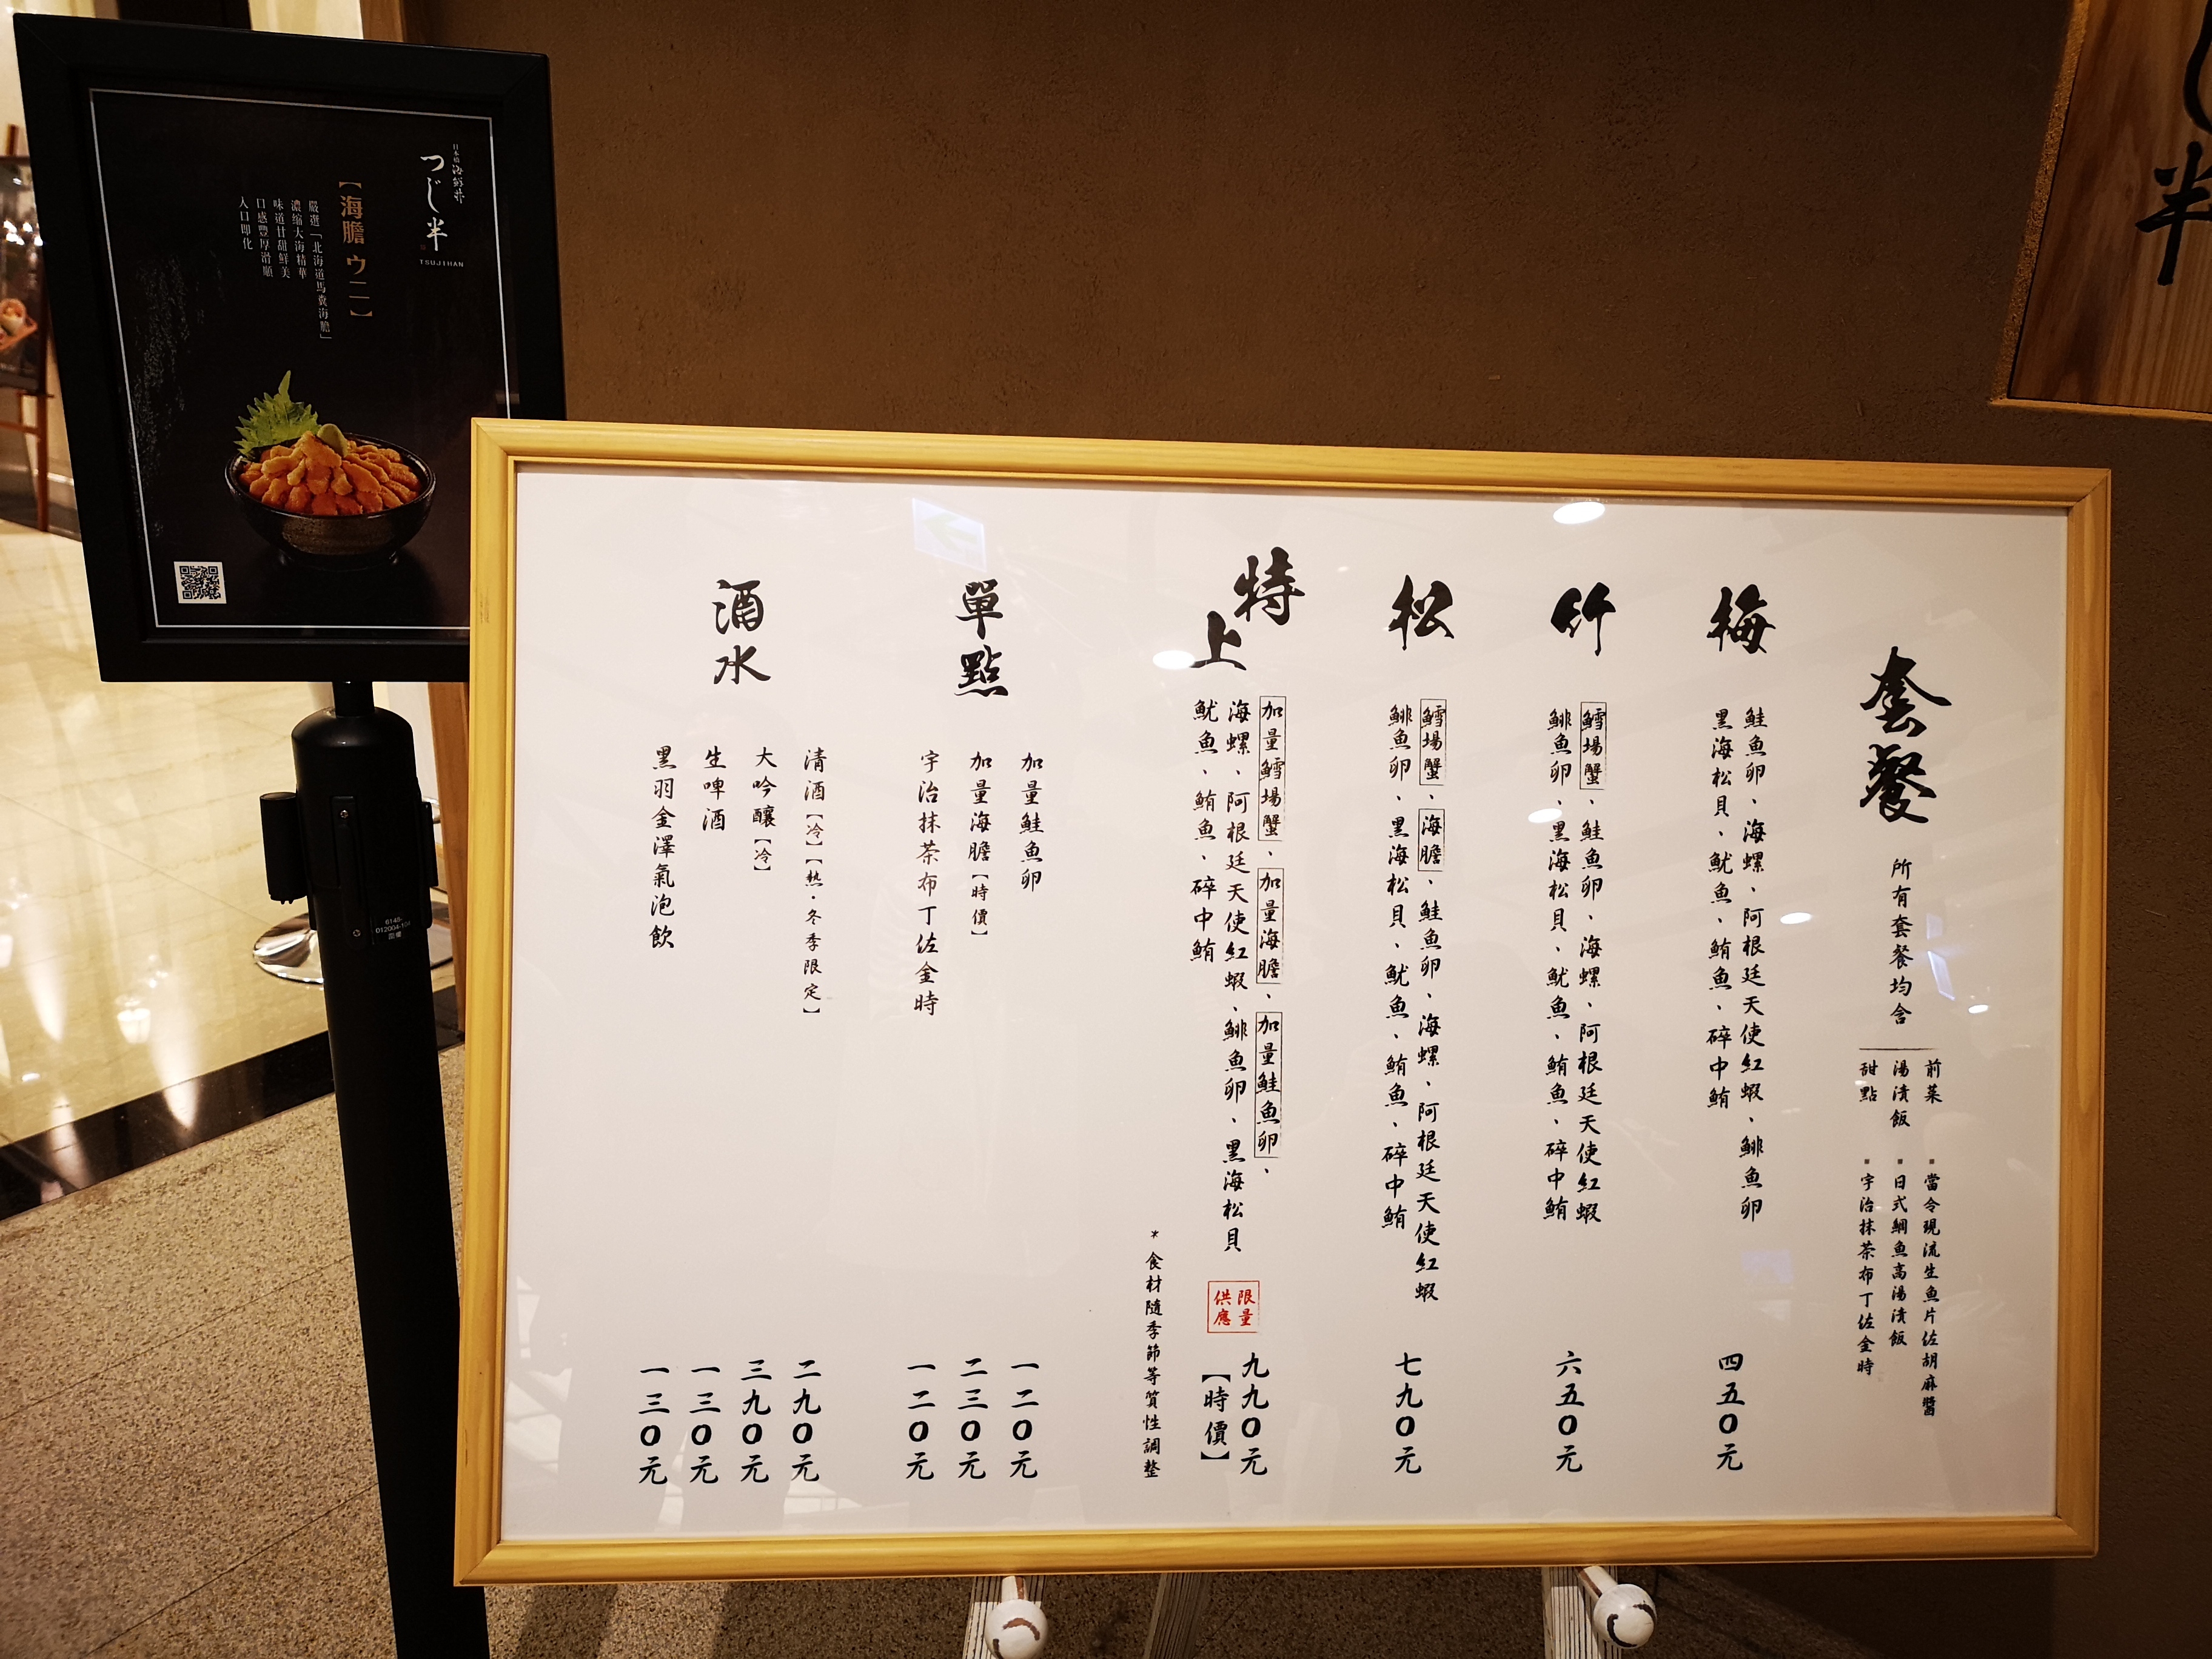 日本橋海鮮丼
つじ半
TSUJIHAN
【海膽 ウニ】
嚴選「北海道馬糞海膽」
濃縮大海精華
味道甘甜鮮美
口感豐厚滑順
入口即化
半
套餐
所有套餐均含
前菜 ▪ 當令現流生魚片佐胡麻醬
湯漬飯 ▪ 日式鯛魚高湯漬飯
甜點 ▪ 宇治抹茶布丁佐金時
梅
鮭魚卵、海螺、阿根廷天使紅蝦、鯡魚卵
黑海松貝、魷魚、鮪魚、碎中鮪
四五〇元
竹
鱈場蟹、鮭魚卵、海螺、阿根廷天使紅蝦
鯡魚卵、黑海松貝、魷魚、鮪魚、碎中鮪
六五〇元
松
鱈場蟹、海膽、鮭魚卵、海螺、阿根廷天使紅蝦
鯡魚卵、黑海松貝、魷魚、鮪魚、碎中鮪
七九〇元
特上
加量鱈場蟹、加量海膽、加量鮭魚卵、
海螺、阿根廷天使紅蝦、鯡魚卵、黑海松貝
魷魚、鮪魚、碎中鮪
限量
供應
九九〇元
【時價】
*食材隨季節等質性調整
單點
加量鮭魚卵 一二〇元
加量海膽【時價】 二三〇元
宇治抹茶布丁佐金時 一二〇元
酒水
清酒【冷】【熱·冬季限定】 二九〇元
大吟釀【冷】 三九〇元
生啤酒 一三〇元
黑羽金澤氣泡飲 一三〇元